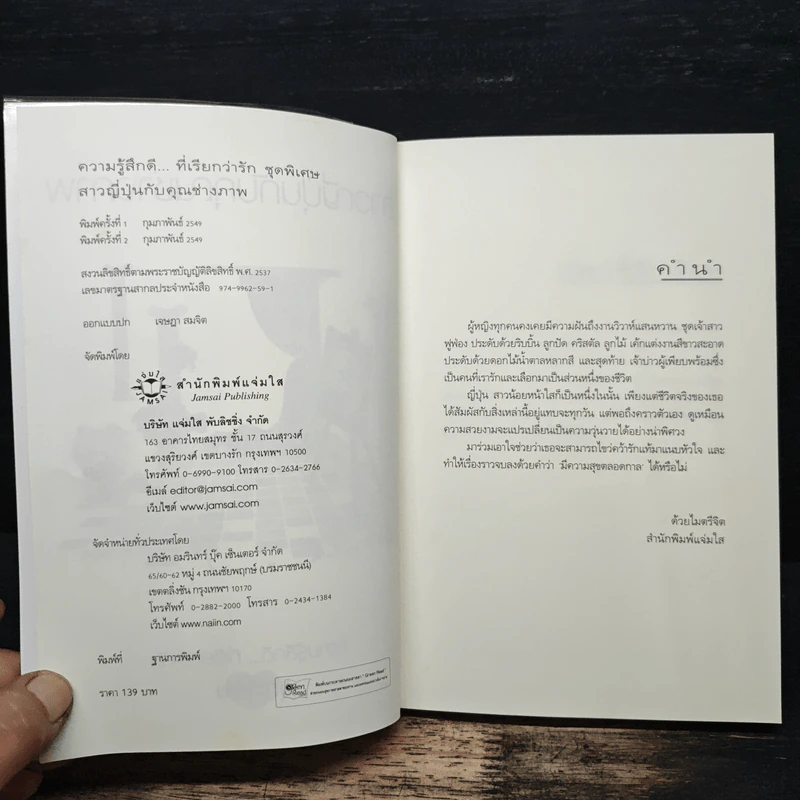 ความรู้สึกดี... ที่เรียกว่ารัก ชุดพิเศษ
สาวญี่ปุ่นกับคุณช่างภาพ
พิมพ์ครั้งที่ 1 กุมภาพันธ์ 2549
พิมพ์ครั้งที่ 2 กุมภาพันธ์ 2549
สงวนลิขสิทธิ์ตามพระราชบัญญัติลิขสิทธิ์ พ.ศ. 2537
เลขมาตรฐานสากลประจำหนังสือ 974-9962-59-1
ออกแบบปก เจษฎา สมจิต
จัดพิมพ์โดย
แจ่มใส
JAMSAI
สำนักพิมพ์แจ่มใส
Jamsai Publishing
บริษัท แจ่มใส พับลิชชิ่ง จำกัด
163 อาคารไทยสมุทร ชั้น 17 ถนนสุรวงศ์
แขวงสุริยวงศ์ เขตบางรัก กรุงเทพฯ 10500
โทรศัพท์ 0-6990-9100 โทรสาร 0-2634-2766
อีเมล์ editor@jamsai.com
เว็บไซต์ www.jamsai.com
จัดจำหน่ายทั่วประเทศโดย
บริษัท อมรินทร์ บุ๊ค เซ็นเตอร์ จำกัด
65/60-62 หมู่ 4 ถนนชัยพฤกษ์ (บรมราชชนนี)
เขตตลิ่งชัน กรุงเทพฯ 10170
โทรศัพท์ 0-2882-2000 โทรสาร 0-2434-1384
เว็บไซต์ www.naiin.com
พิมพ์ที่ ฐานการพิมพ์
ราคา 139 บาท
คำนำ
ผู้หญิงทุกคนคงเคยมีความฝันถึงงานวิวาห์แสนหวาน ชุดเจ้าสาว
ฟูฟ่อง ประดับด้วยริบบิ้น ลูกปัด คริสตัล ลูกไม้ เค้กแต่งงานสีขาวสะอาด
ประดับด้วยดอกไม้น้ำตาลหลากสี และสุดท้าย เจ้าบ่าวผู้เพียบพร้อมซึ่ง
เป็นคนที่เรารักและเลือกมาเป็นส่วนหนึ่งของชีวิต
ญี่ปุ่น สาวน้อยหน้าใสก็เป็นหนึ่งในนั้น เพียงแต่ชีวิตจริงของเธอ
ได้สัมผัสกับสิ่งเหล่านี้อยู่แทบจะทุกวัน แต่พอถึงคราวตัวเอง ดูเหมือน
ความสวยงามจะแปรเปลี่ยนเป็นความวุ่นวายได้อย่างน่าพิศวง
มาร่วมเอาใจช่วยว่าเธอจะสามารถไขว่คว้ารักแท้มาแนบหัวใจ และ
ทำให้เรื่องราวจบลงด้วยคำว่า 'มีความสุขตลอดกาล' ได้หรือไม่
ด้วยไมตรีจิต
สำนักพิมพ์แจ่มใส